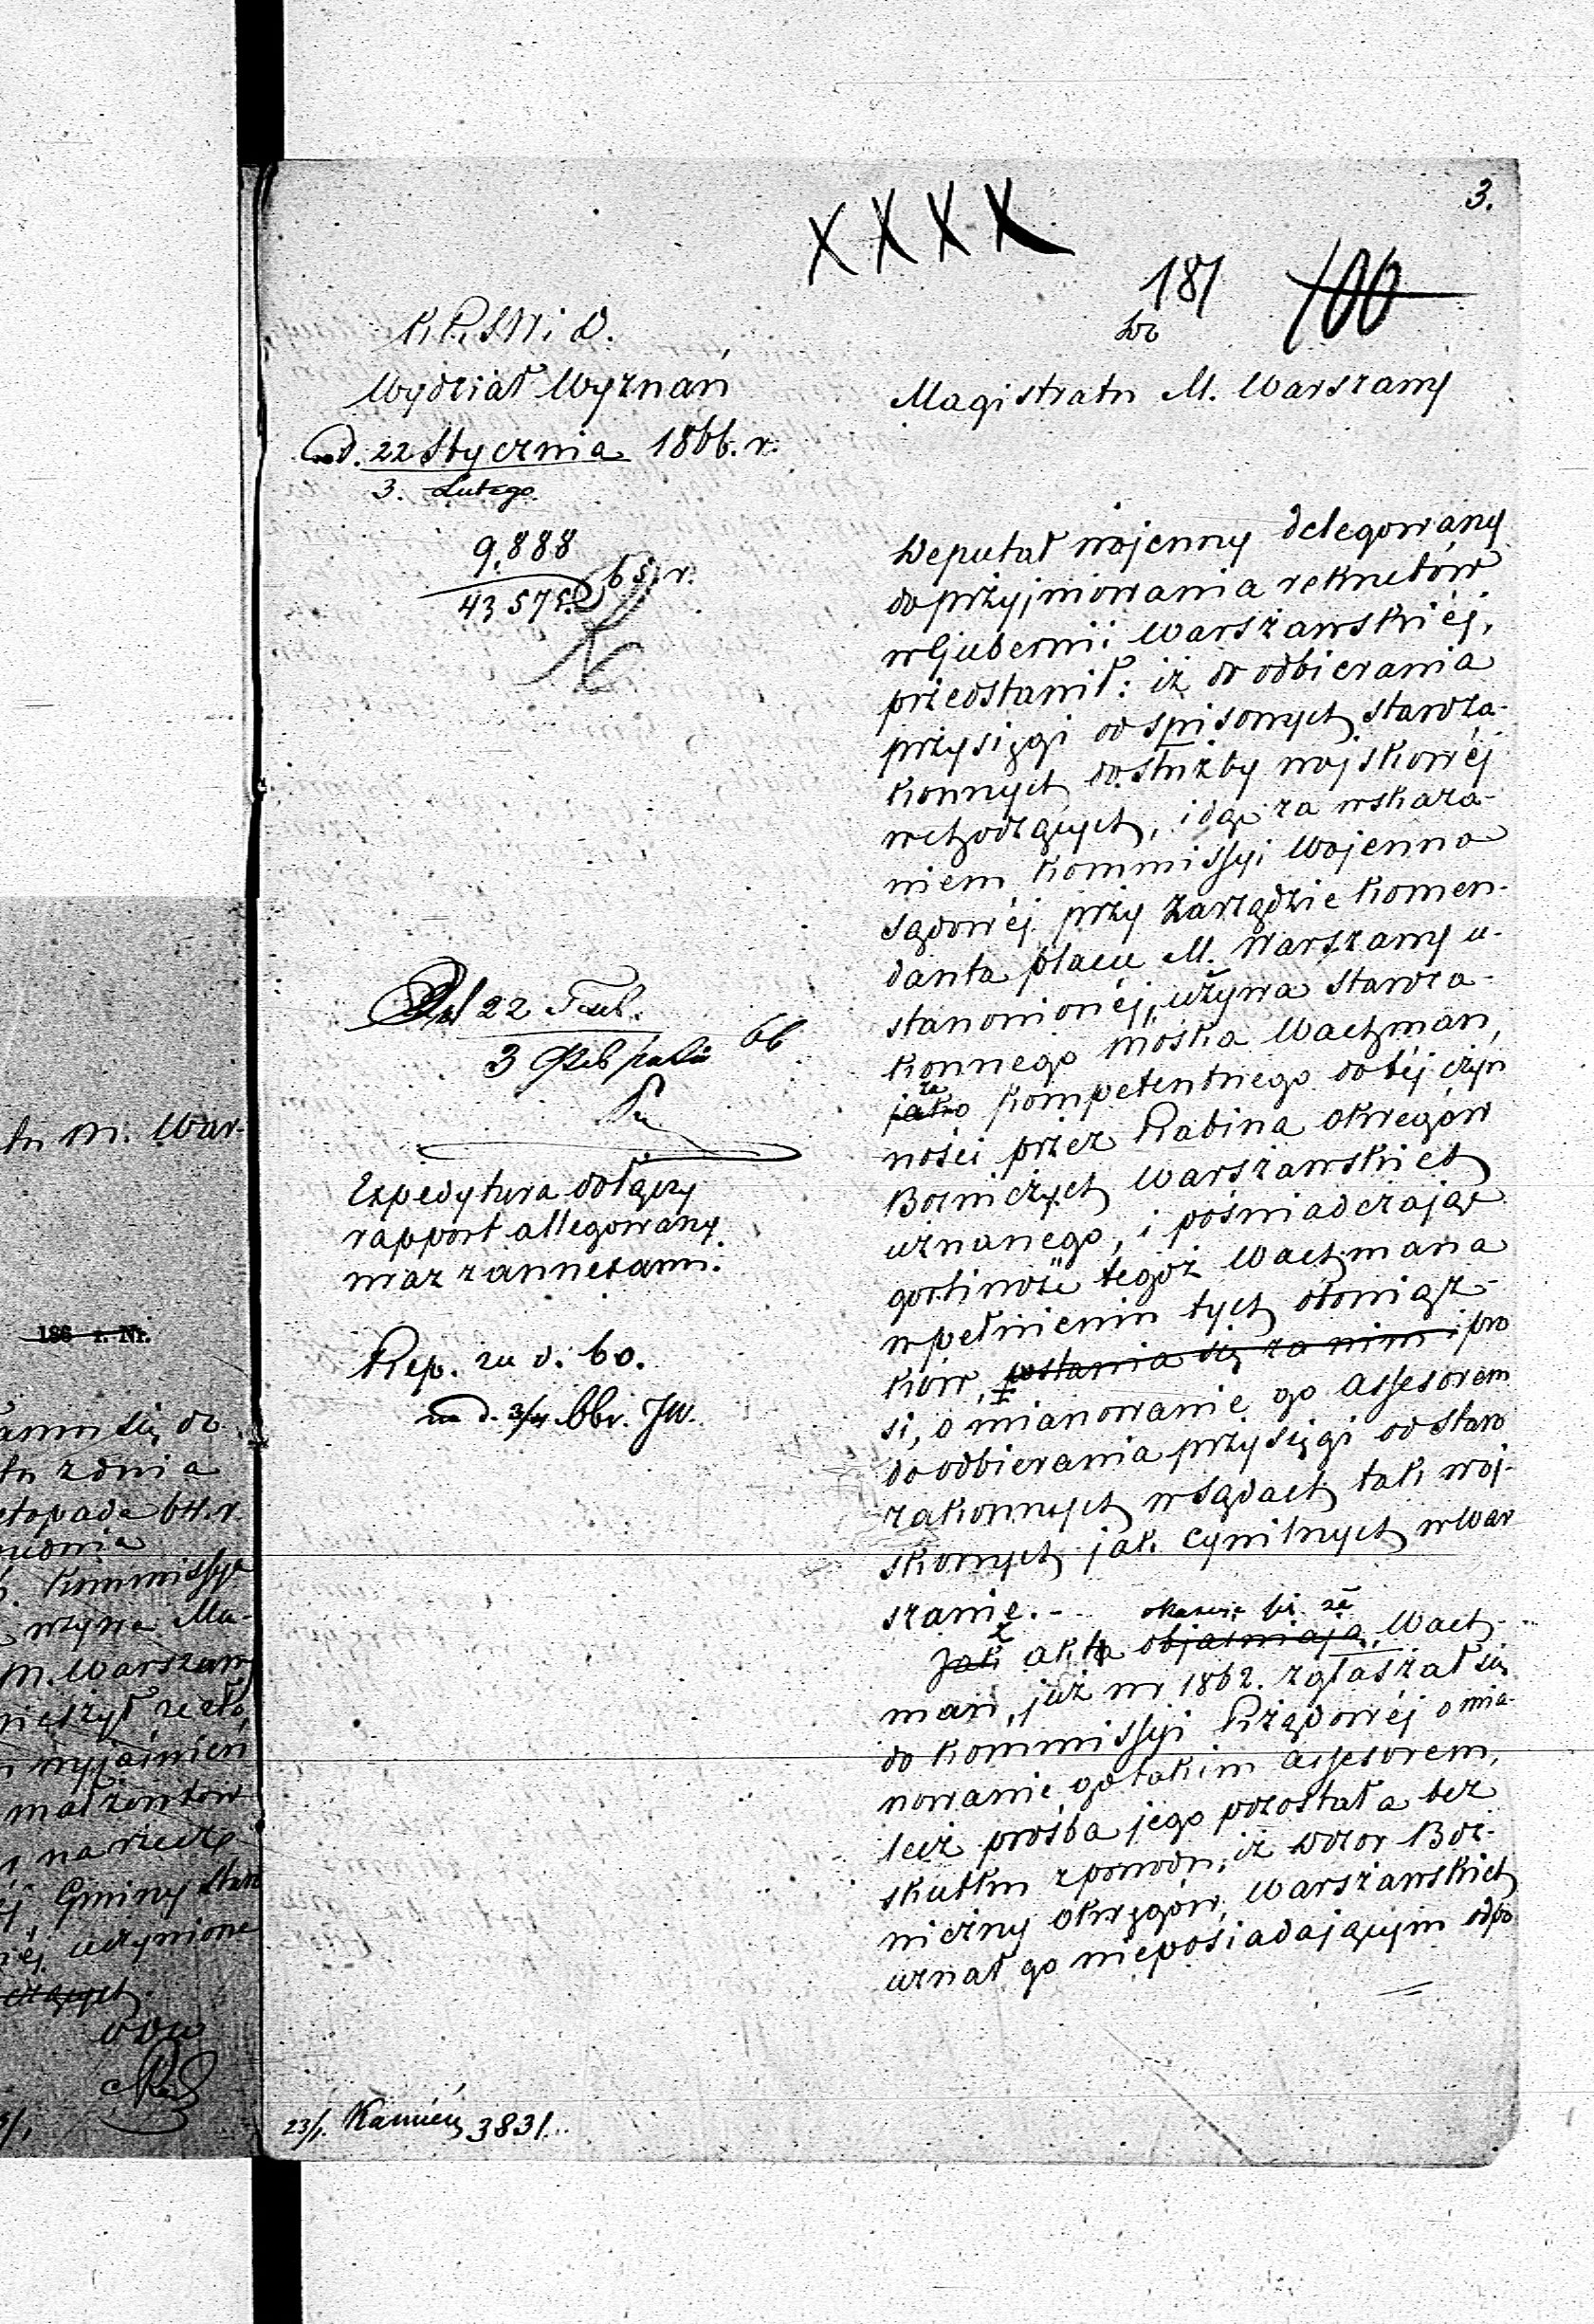 3.
XXXX
181
100
K.R.S.W. i D.
Wydział Wyznań
d. 22 Stycznia 1866. r.
3. Lutego.
9,888
43575. 65 r.
Do
Magistratu M. Warszawy
Deputat wojenny delegowany
do przyjmowania rekrutów
w Gubernii Warszawskiéj,
przedstawił: iż do odbierania
przysięgi od spisowych staroza-
konnych do służby wojskowéj
wchodzących, idąc za wskaza-
niem Kommissyi Wojenno
Sądowéj przy Zarządzie Komen-
danta placu M. Warszawy u-
stanowionéj, używa staroza-
konnego Moska Wachman,
jako za kompetentnego do téj czyn
ności przez Rabina Okręgów
Bożniczych Warszawskich
uznanego, i poświadczając
gorliwość tegoż Wachmana
w pełnieniu tych obowiąz-
ków, wstawia się za nim i pro
si, o mianowanie go Assesorem
do odbierania przysięgi od staro
zakonnych w Sądach tak woj-
skowych jak cywilnych w War
szawie. -
Jak Z akta objaśniają okazuje się że Wach-
man, już w r. 1862. zgłaszał się
do Kommissyi Rządowéj o mia-
nowanie go takim Assesorem,
lecz prośba jego pozostała bez
skutku z powodu, iż Dozór Boż-
niczny Okręgów Warszawskich
uznał go nieposiadającym odpo
22
3 66
Expedytura dołączy
rapport allegowany
wraz z annexami.
Rep. zu d. 60.
d. 3/4 66 r. JW.
23/1. Kamień 3831.
tu M. War-
186 r. Nr.
tu z dnia
Listopada 64. r.
Kommissya
wzywa Ma-
M. Warszawy
wyjaśnień
małżonków
na rzecz
Gminy Star
uczynione